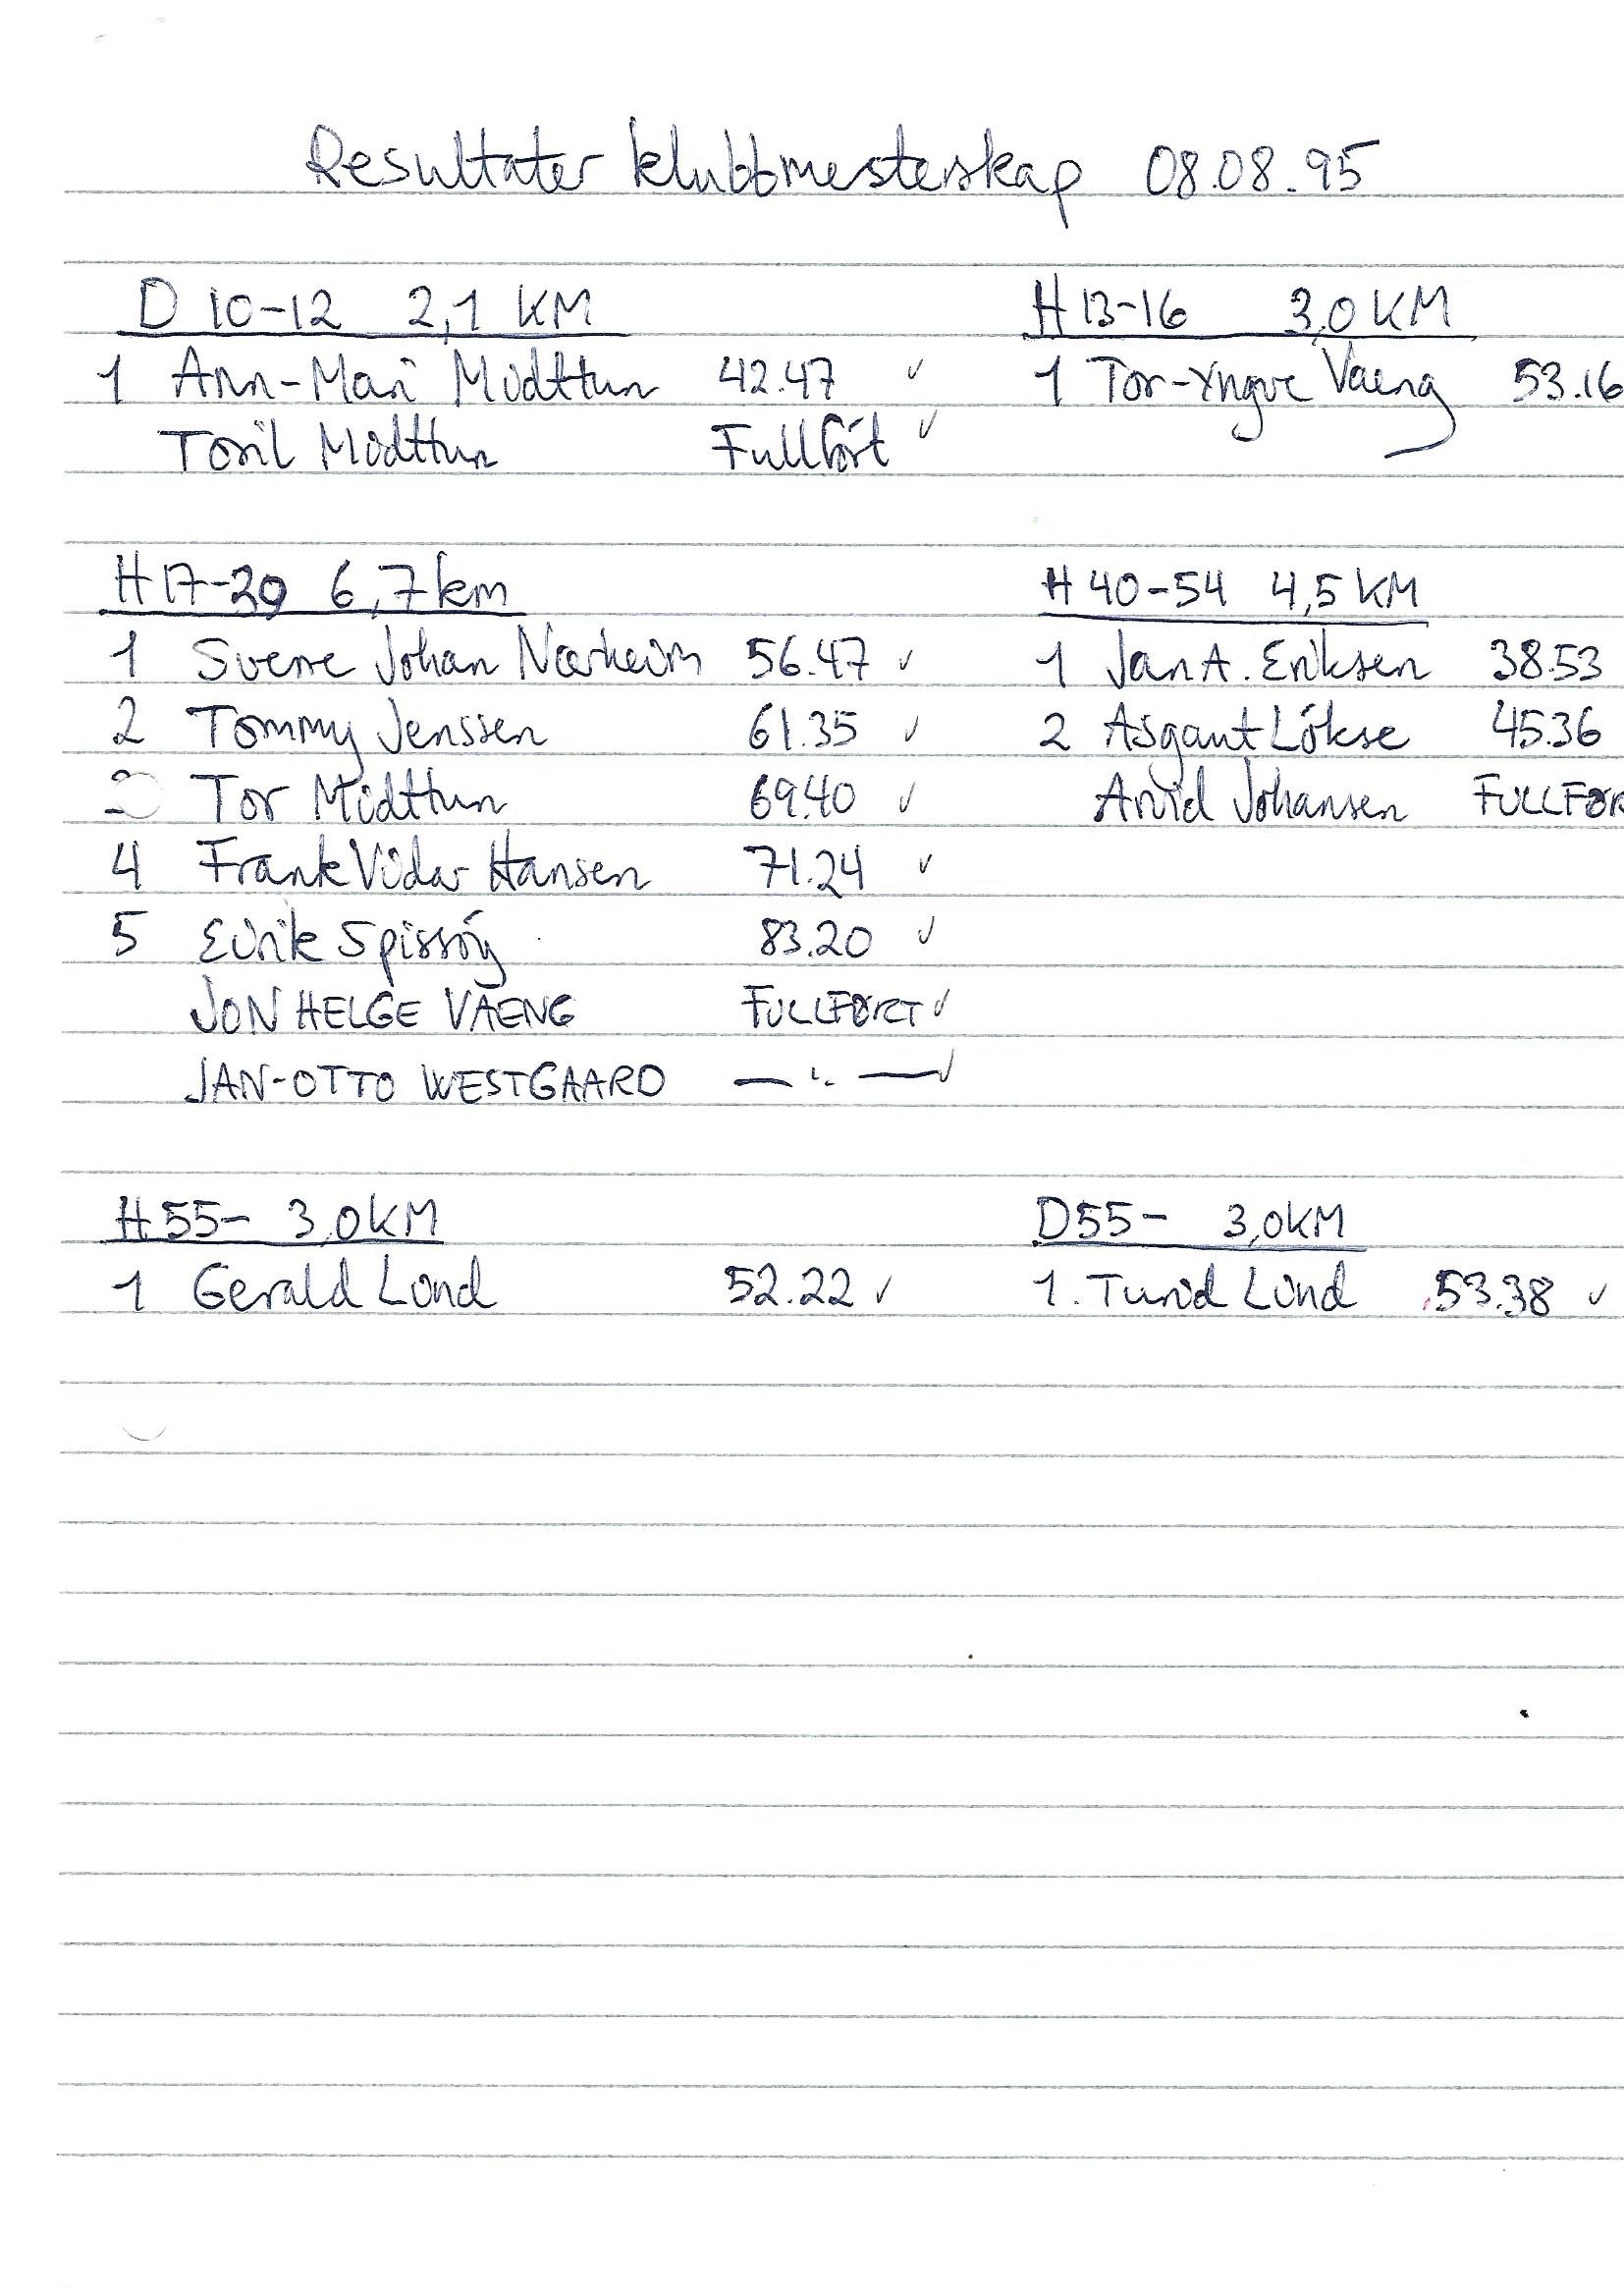 Resultater klubbmesterskap 08.08.95
D 10-12 2,1 KM
1 Ann-Mari Midttun 42.47 ✓
Toril Midttun Fullført ✓
H 13-16 3,0 KM
1 Tor-Yngve Vaeng 53.16
H 17-39 6,7 km
1 Sverre Johan Nærheim 56.47 ✓
2 Tommy Jenssen 61.35 ✓
Tor Midttun 69.40 ✓
4 Frank Vidar Hansen 71.24 ✓
5 Eirik Spissøy 83.20 ✓
JON HELGE VAENG FULLFØRT ✓
JAN-OTTO WESTGAARD — " — ✓
H 40-54 4,5 KM
1 Jan A. Eriksen 38.53
2 Asgaut Løkse 45.36
Arvid Johansen FULLFØR
H 55- 3,0 KM
1 Gerald Lind 52.22 ✓
D 55- 3,0 KM
1. Turid Lind 53.38 ✓